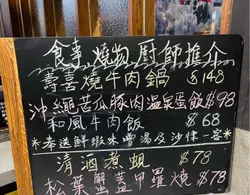 食事燒物廚師推介
壽喜燒牛肉鍋 $148
沖繩苦瓜豚肉溫泉蛋飯 $98
和風牛肉飯 $68
*奉送鮮蝦味噌湯及沙律一客*
清酒煮蜆 $78
松葉蟹蓋甲羅燒 $78